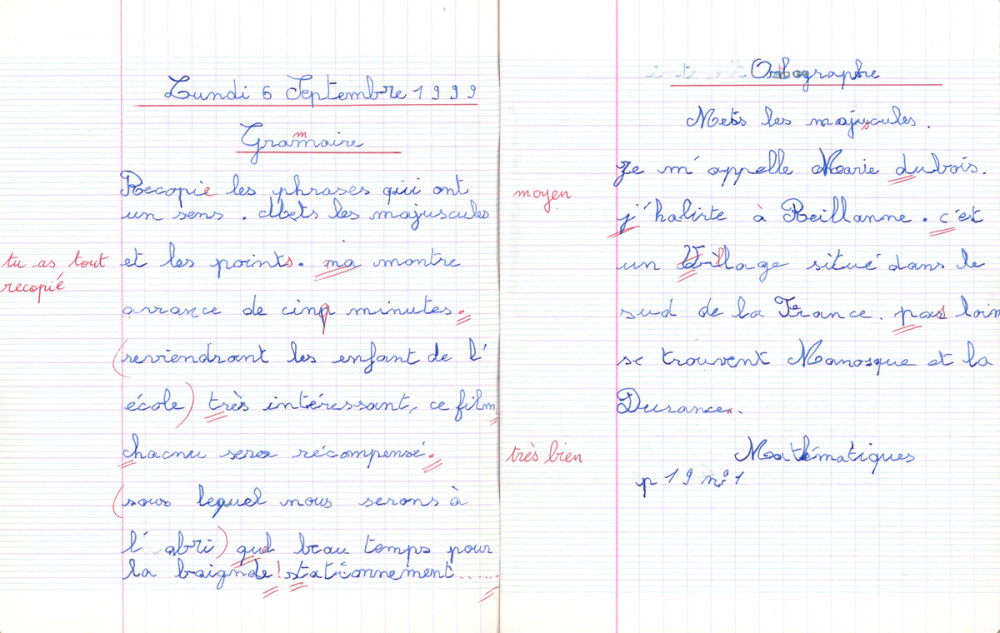 Lundi 6 Septembre 1999
Grammaire
Recopie les phrases qui ont
un sens. Mets les majuscules
tu as tout
recopié
et les points. ma montre
avance de cinq minutes.
(reviendront les enfant de l'
école) très intéressant, ce film
chacun sera récompensé.
(sous lequel nous serons à
l'abri) quel beau temps pour
la baignde! stationnement......
Orthographe
Mets les majuscules.
moyen
Je m'appelle Marie dubois.
j'habite à Reillanne. c'est
un Village situé dans le
sud de la France. pas loin
se trouvent Manosque et la
Durance.
très bien
Mathématiques
p 19 n°1